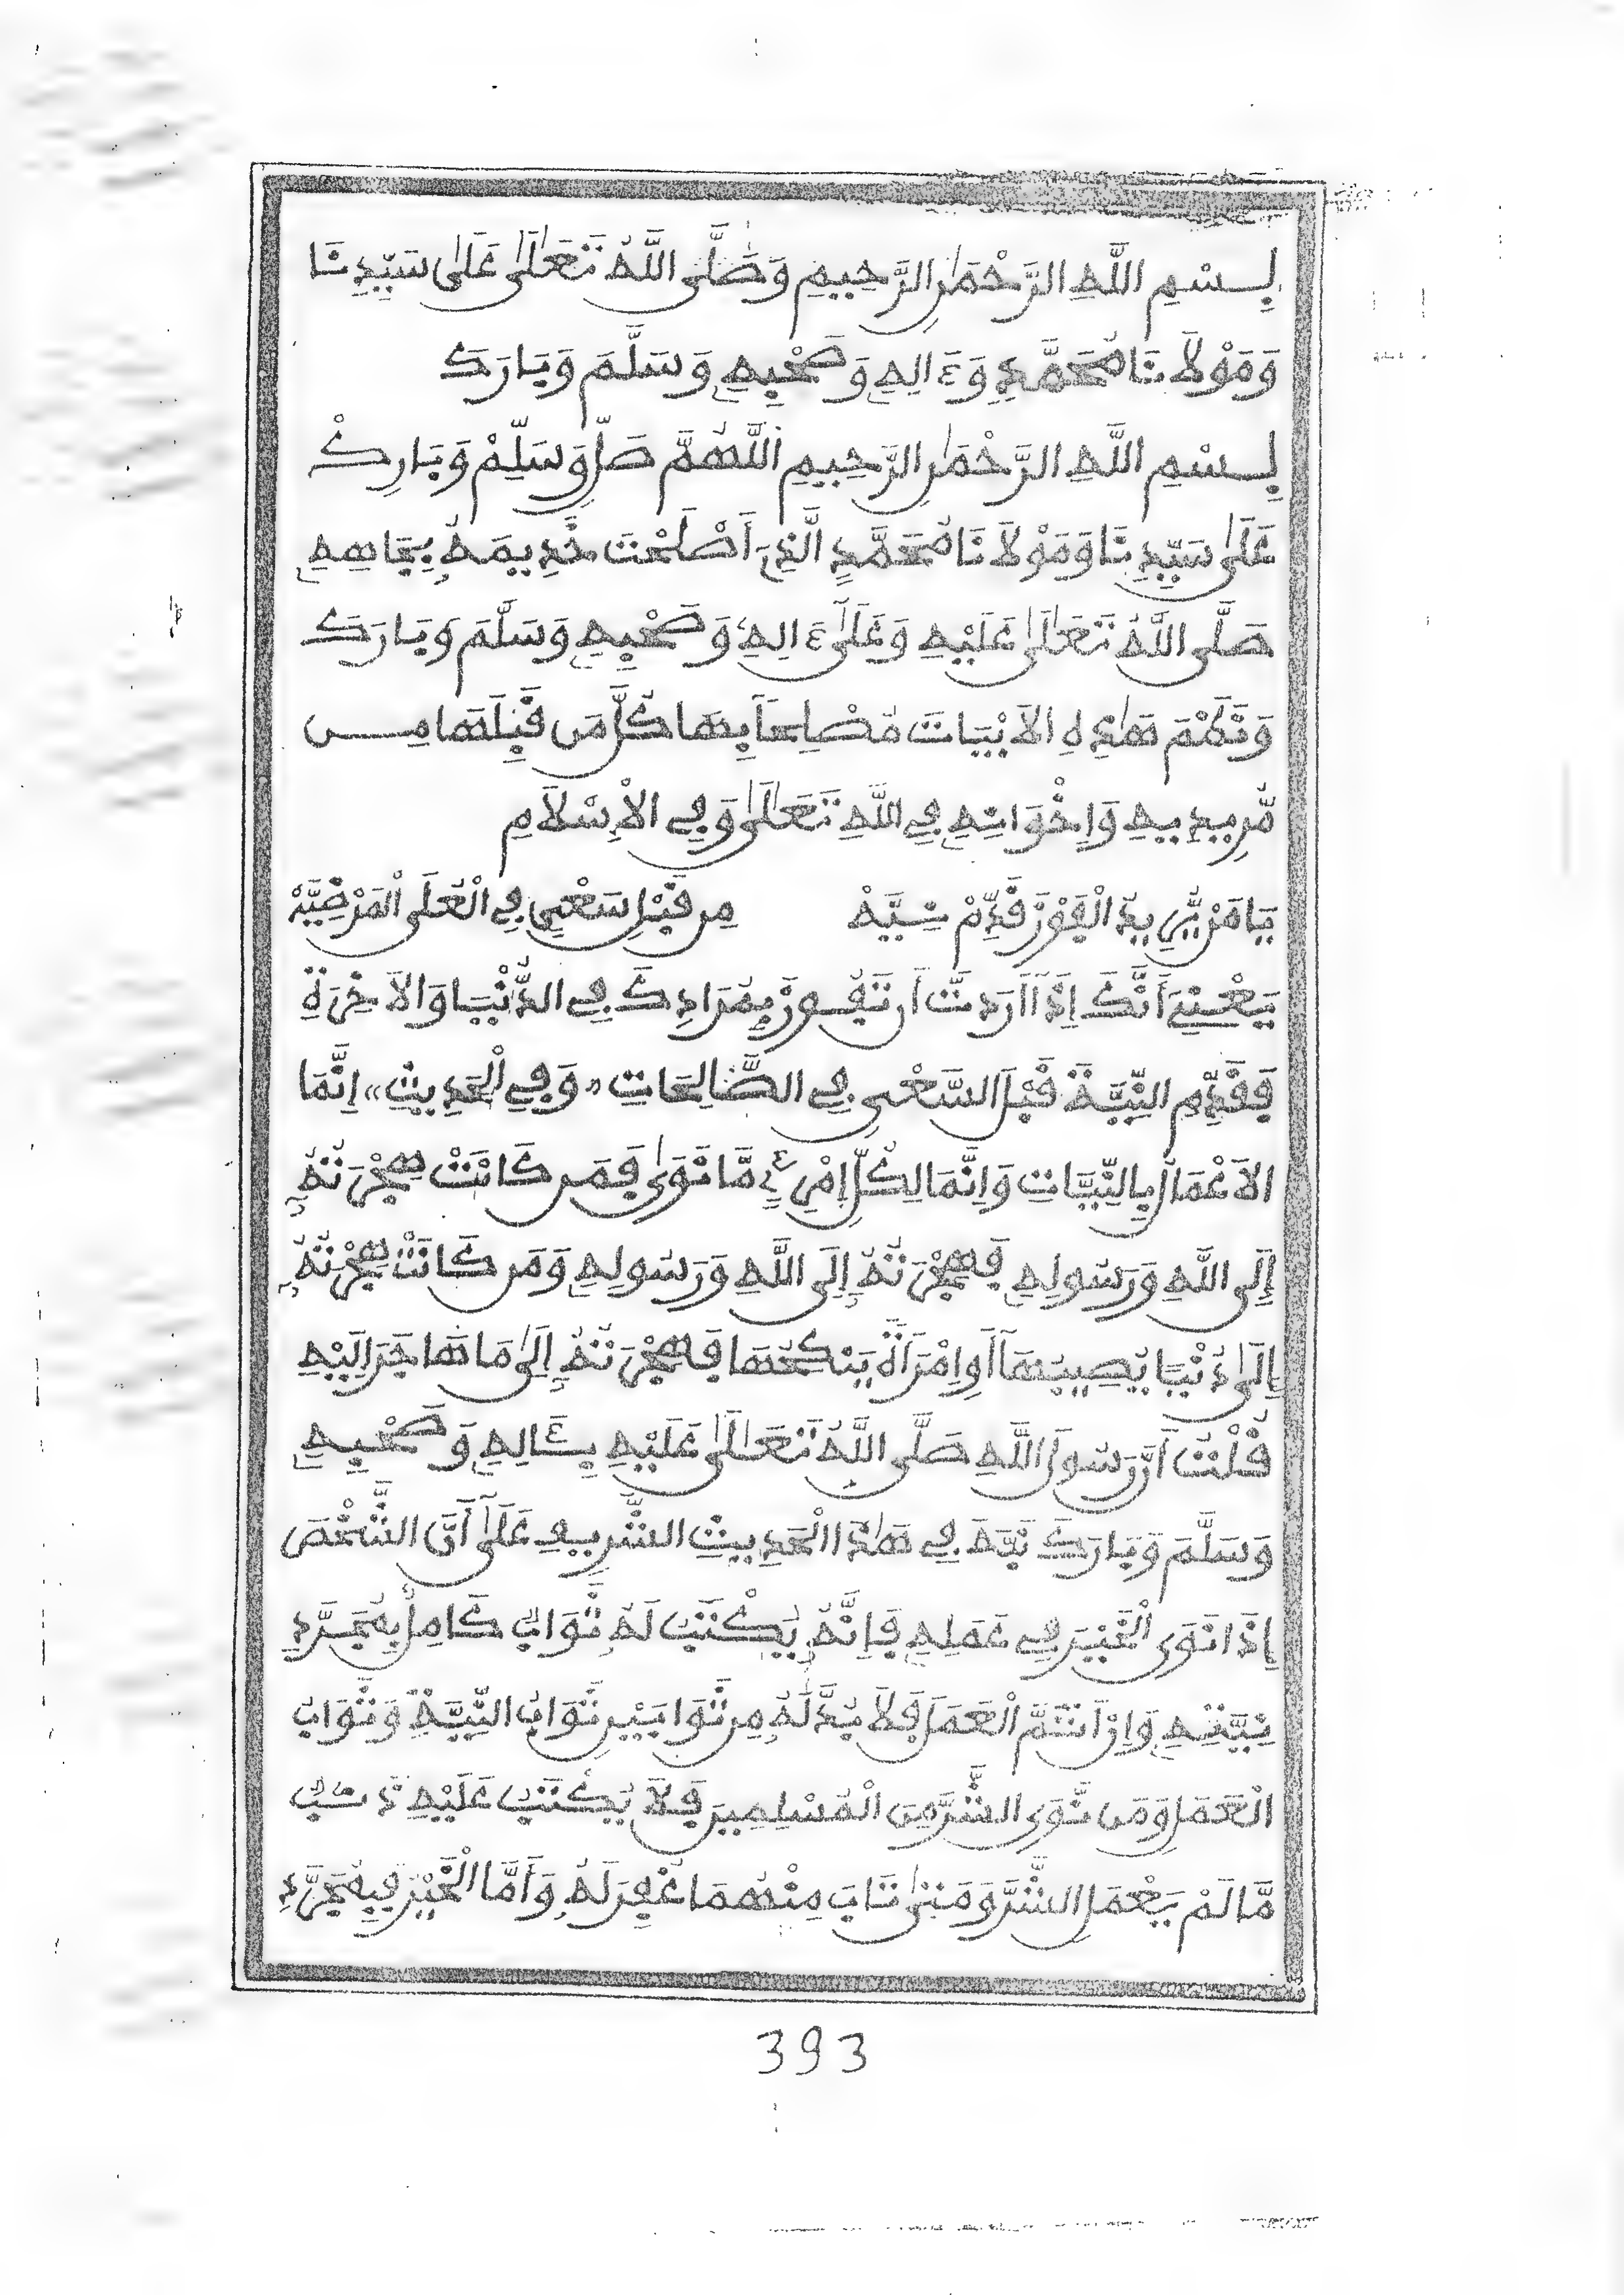 بِسْمِ اللَّهِ الرَّحْمَٰنِ الرَّحِيمِ وَصَلَّى اللَّهُ تَعَالَىٰ عَلَىٰ سَيِّدِنَا
وَمَوْلَانَا مُحَمَّدٍ وَءَالِهِ وَصَحْبِهِ وَسَلَّمَ وَبَارَكَ
بِسْمِ اللَّهِ الرَّحْمَٰنِ الرَّحِيمِ اللَّهُمَّ صَلِّ وَسَلِّمْ وَبَارِكْ
عَلَىٰ سَيِّدِنَا وَمَوْلَانَا مُحَمَّدٍ الَّذِي أَصْلَحْتَ خَدِيمَهُ بِجَاهِهِ
صَلَّى اللَّهُ تَعَالَىٰ عَلَيْهِ وَعَلَىٰ ءَالِهِ وَصَحْبِهِ وَسَلَّمَ وَبَارَكَ
وَنَظَمَ هَٰذِهِ الأَبْيَاتَ مُصْلِحاً بِهَا كُلَّ مَن قَبِلَهَا مِن
مُّرِيدِيهِ وَإِخْوَانِهِ فِي اللَّهِ تَعَالَىٰ وَفِي الإِسْلَامِ
يَا مَنْ يُّرِيدُ الْفَوْزَ قَدِّمْ نِيَّهْ مِن قَبْلِ سَعْيٍ فِي الْعُلَى الْمَرْضِيَّهْ
يَعْنِي أَنَّكَ إِذَا أَرَدتَّ أَن تَفُوزَ بِمُرَادِكَ فِي الدُّنْيَا وَالآخِرَةِ
فَقَدِّمِ النِّيَّةَ قَبْلَ السَّعْيِ فِي الصَّالِحَاتِ «وَفِي الْحَدِيثِ» إِنَّمَا
الأَعْمَالُ بِالنِّيَّاتِ وَإِنَّمَا لِكُلِّ امْرِئٍ مَّا نَوَىٰ فَمَن كَانَتْ هِجْرَتُهُ
إِلَى اللَّهِ وَرَسُولِهِ فَهِجْرَتُهُ إِلَى اللَّهِ وَرَسُولِهِ وَمَن كَانَتْ هِجْرَتُهُ
إِلَىٰ دُنْيَا يُصِيبُهَا أَوِ امْرَأَةٍ يَنْكِحُهَا فَهِجْرَتُهُ إِلَىٰ مَا هَاجَرَ إِلَيْهِ
قُلْتُ أَنَّ رَسُولَ اللَّهِ صَلَّى اللَّهُ تَعَالَىٰ عَلَيْهِ بِـَٔالِهِ وَصَحْبِهِ
وَسَلَّمَ وَبَارَكَ نَبَّهَ فِي هَٰذَا الْحَدِيثِ الشَّرِيفِ عَلَىٰ أَنَّ الشَّخْصَ
إِذَا نَوَى الْخَيْرَ فِي عَمَلِهِ فَإِنَّهُ يُكْتَبُ لَهُ ثَوَابٌ كَامِلٌ بِمُجَرَّدِ
نِيَّتِهِ وَإِنْ أَتَمَّ الْعَمَلَ فَلَا بُدَّ لَهُ مِن ثَوَابَيْنِ ثَوَابُ النِّيَّةِ وَثَوَابُ
الْعَمَلِ وَمَن نَّوَى الشَّرَّ مِنَ الْمُسْلِمِينَ فَلَا يُكْتَبُ عَلَيْهِ ذَنْبٌ
مَّا لَمْ يَعْمَلِ الشَّرَّ وَمَتَىٰ تَابَ مِنْهُمَا غُفِرَ لَهُ وَأَمَّا الْخَيْرُ فَبِمُجَرَّدِ
393